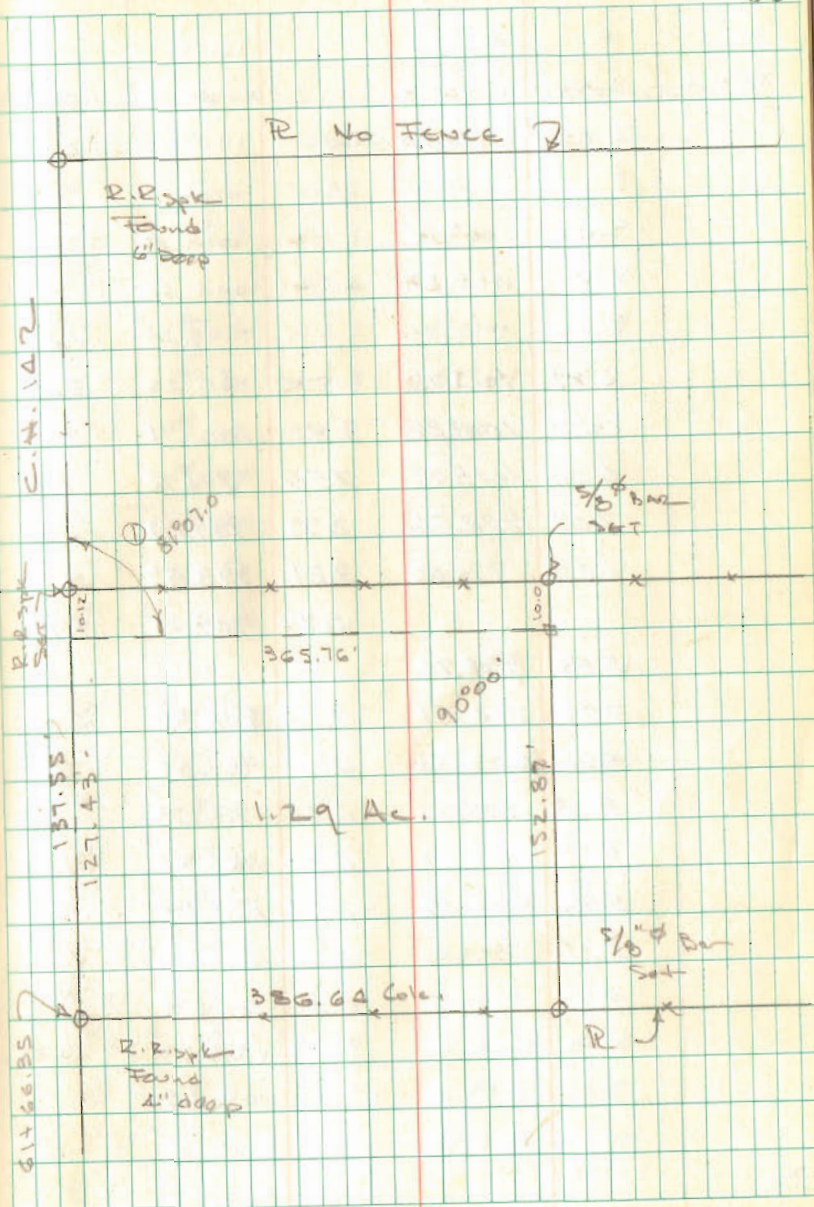 PL NO FENCE
R.R. spk
Found
6" Deep
C.H. 142
① 81°07.0
5/8" ⌀ BAR
SET
R.R. spk
Set
10.12
10.0
365.76'
90°00'
137.55'
127.43'
152.87'
1.29 Ac.
5/8" ⌀ Bar
Set
386.64 Calc.
PL
R.R. spk
Found
4" deep
61+66.35